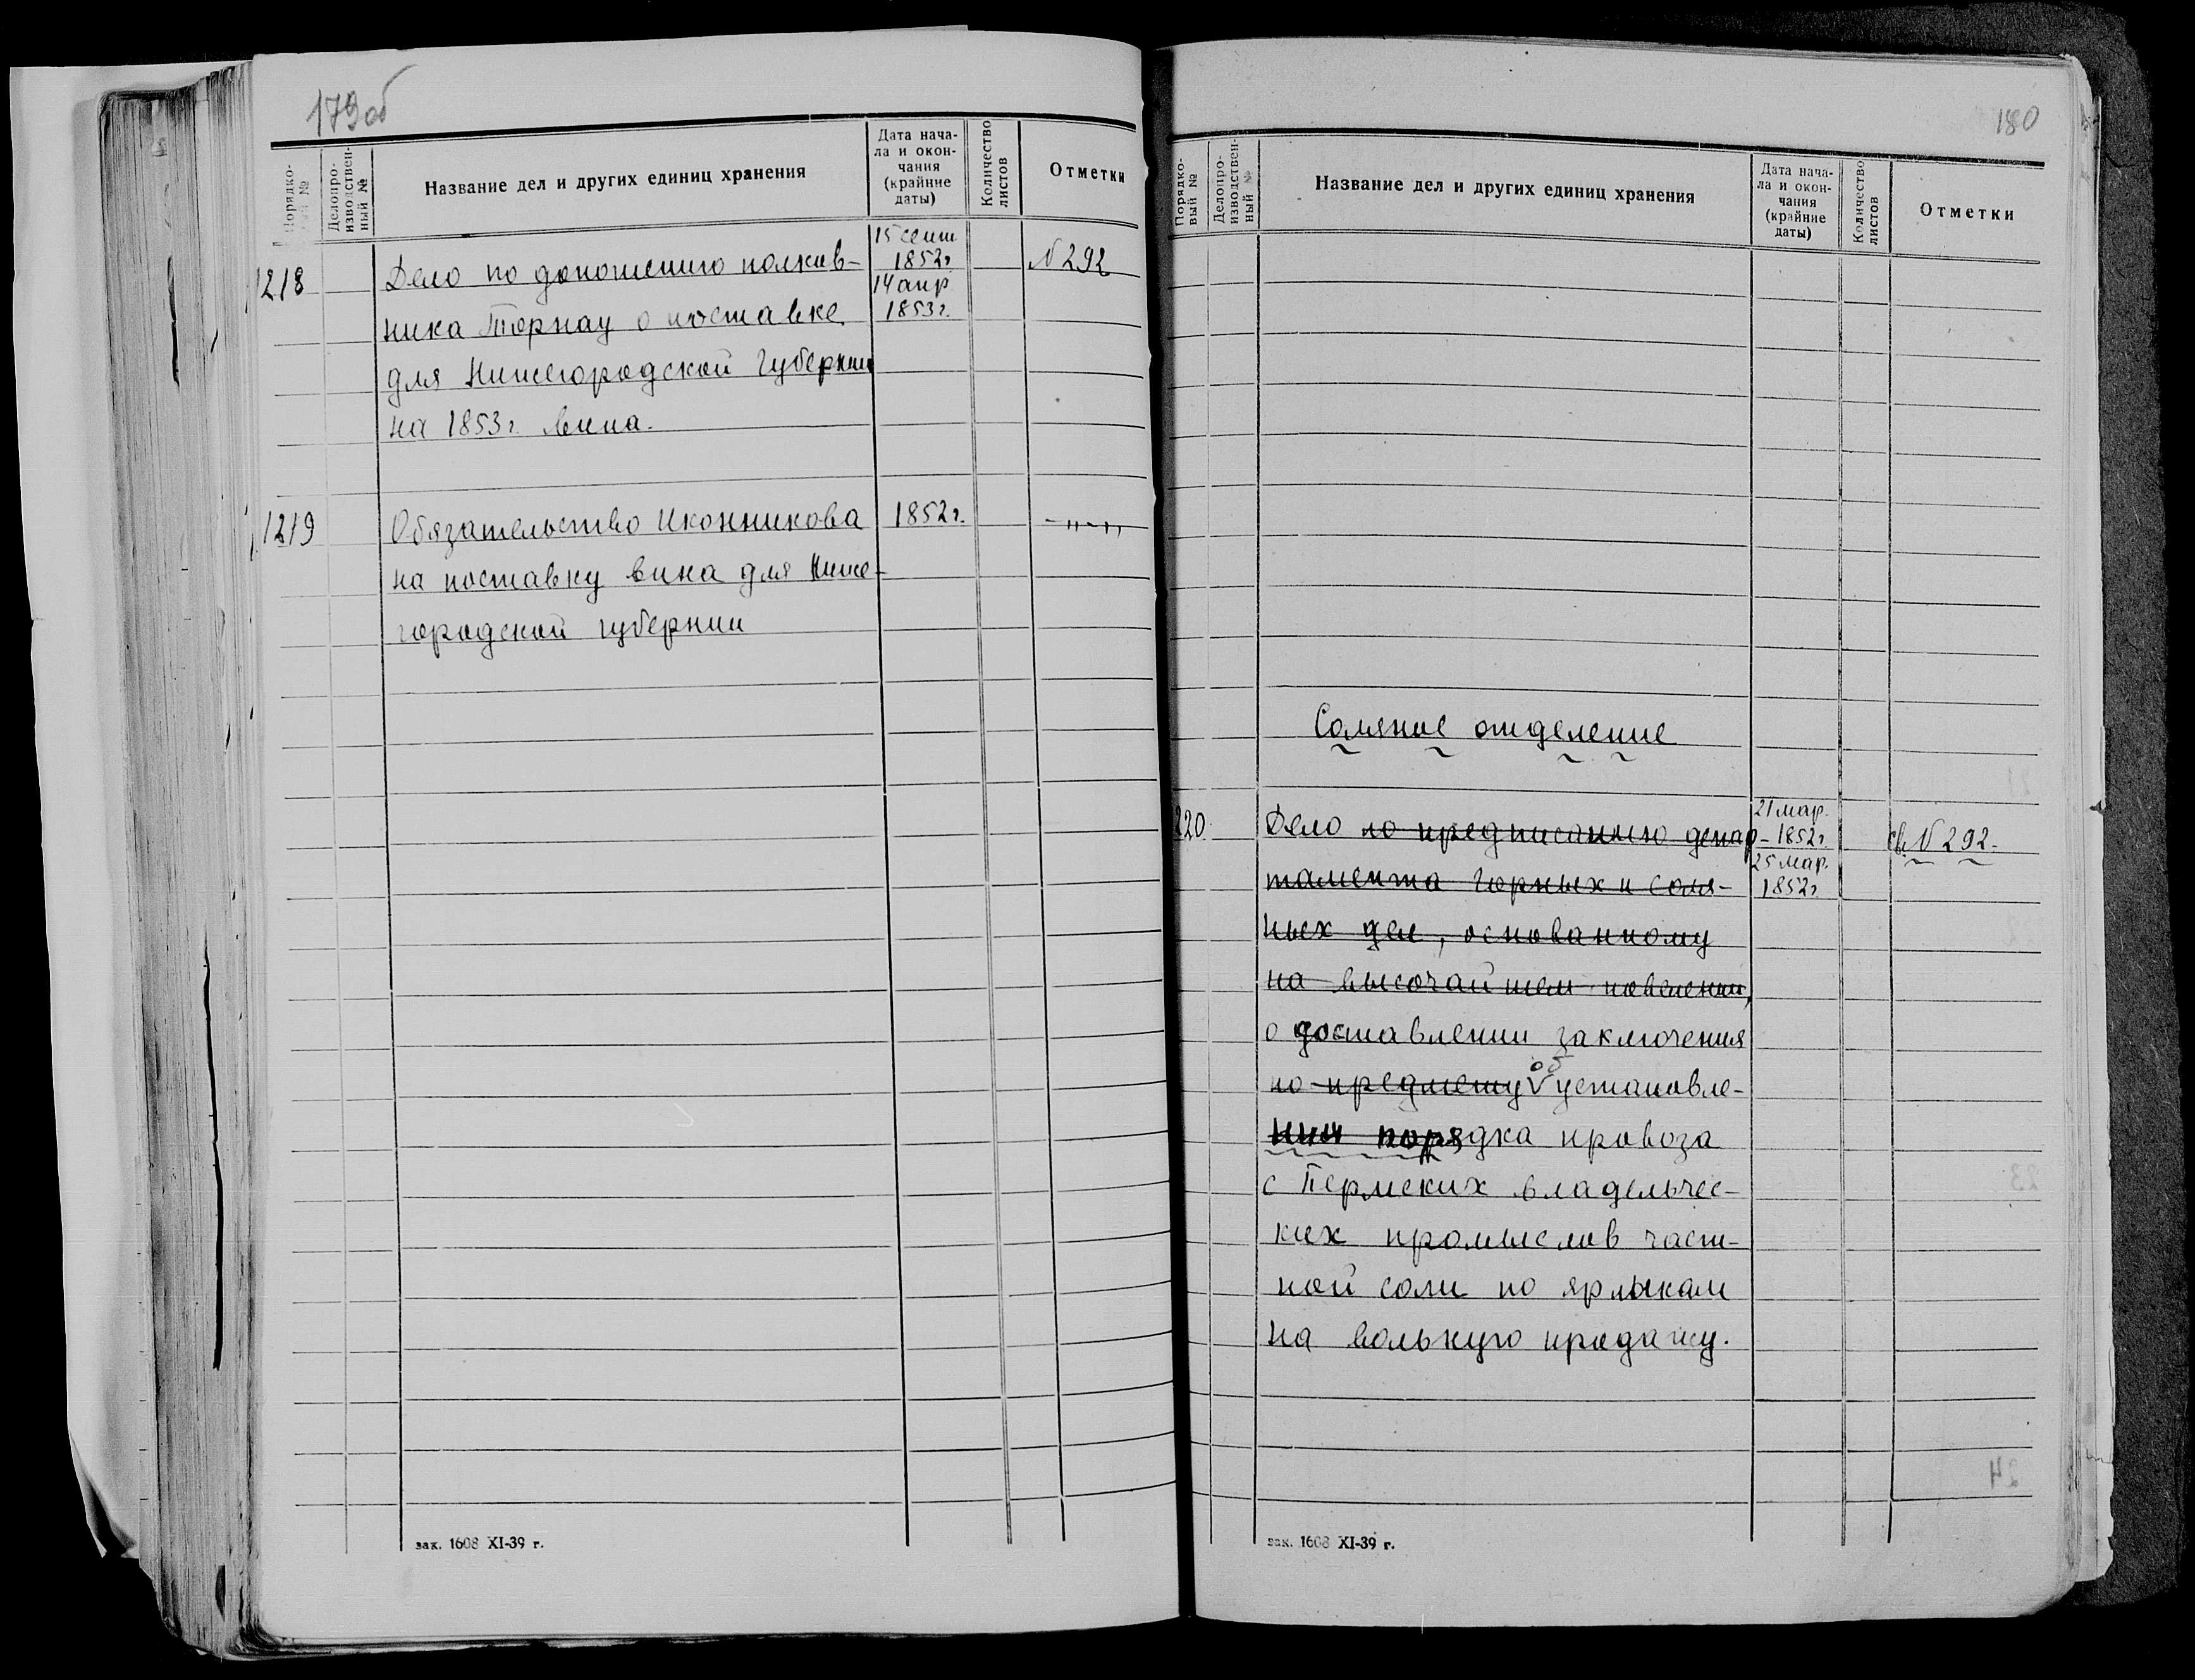 179об
Порядковый №
Делопроизводственный №
Название дел и других единиц хранения
Дата нача-
ла и окон-
чания
(крайние
даты)
Количество
листов
Отметки
1218
Дело по доношению полков-
ника Торнау о поставке
для Нижегородской Губернии
на 1853г. вина.
15 сент
1852г
14 апр
1853г.
№ 292
1219
Обязательство Иконникова
на поставку вина для Ниже-
городской губернии
1852г.
-„-„
зак. 1608 XI-39 г.
180
Порядко-
вый №
Делопро-
изводствен-
ный №
Название дел и других единиц хранения
Дата нача-
ла и окон-
чания
(крайние
даты)
Количество
листов
Отметки
Соляное отделение
220
Дело по предписанию депар-
тамента Горных и Соля-
ных дел, основанному
на высочайшем повелении,
о доставлении заключения
об
по предмету установле-
нии порядка провоза
с Пермских владельчес-
ких промыслов част-
ной соли по ярлыкам
на вольную продажу.
21 мар.
1852г.
25 мар.
1852г.
св. № 292.
зак. 1608 XI-39 г.